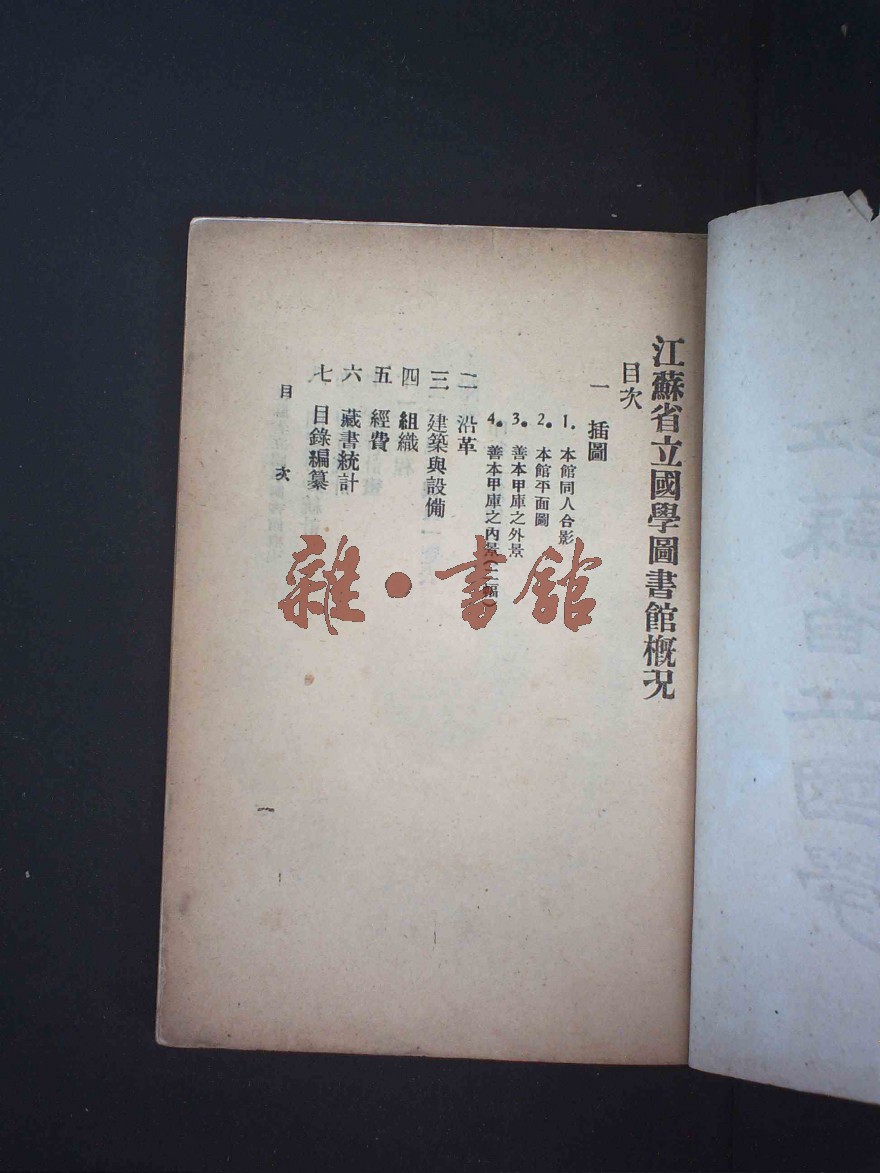 江蘇省立國學圖書館槪況
目次
一 插圖
1. 本館同人合影
2. 本館平面圖
3. 善本甲庫之外景
4. 善本甲庫之內景(二幅)
二 沿革
三 建築與設備
四 組織
五 經費
六 藏書統計
七 目錄編纂
目 次
一
雜·書館